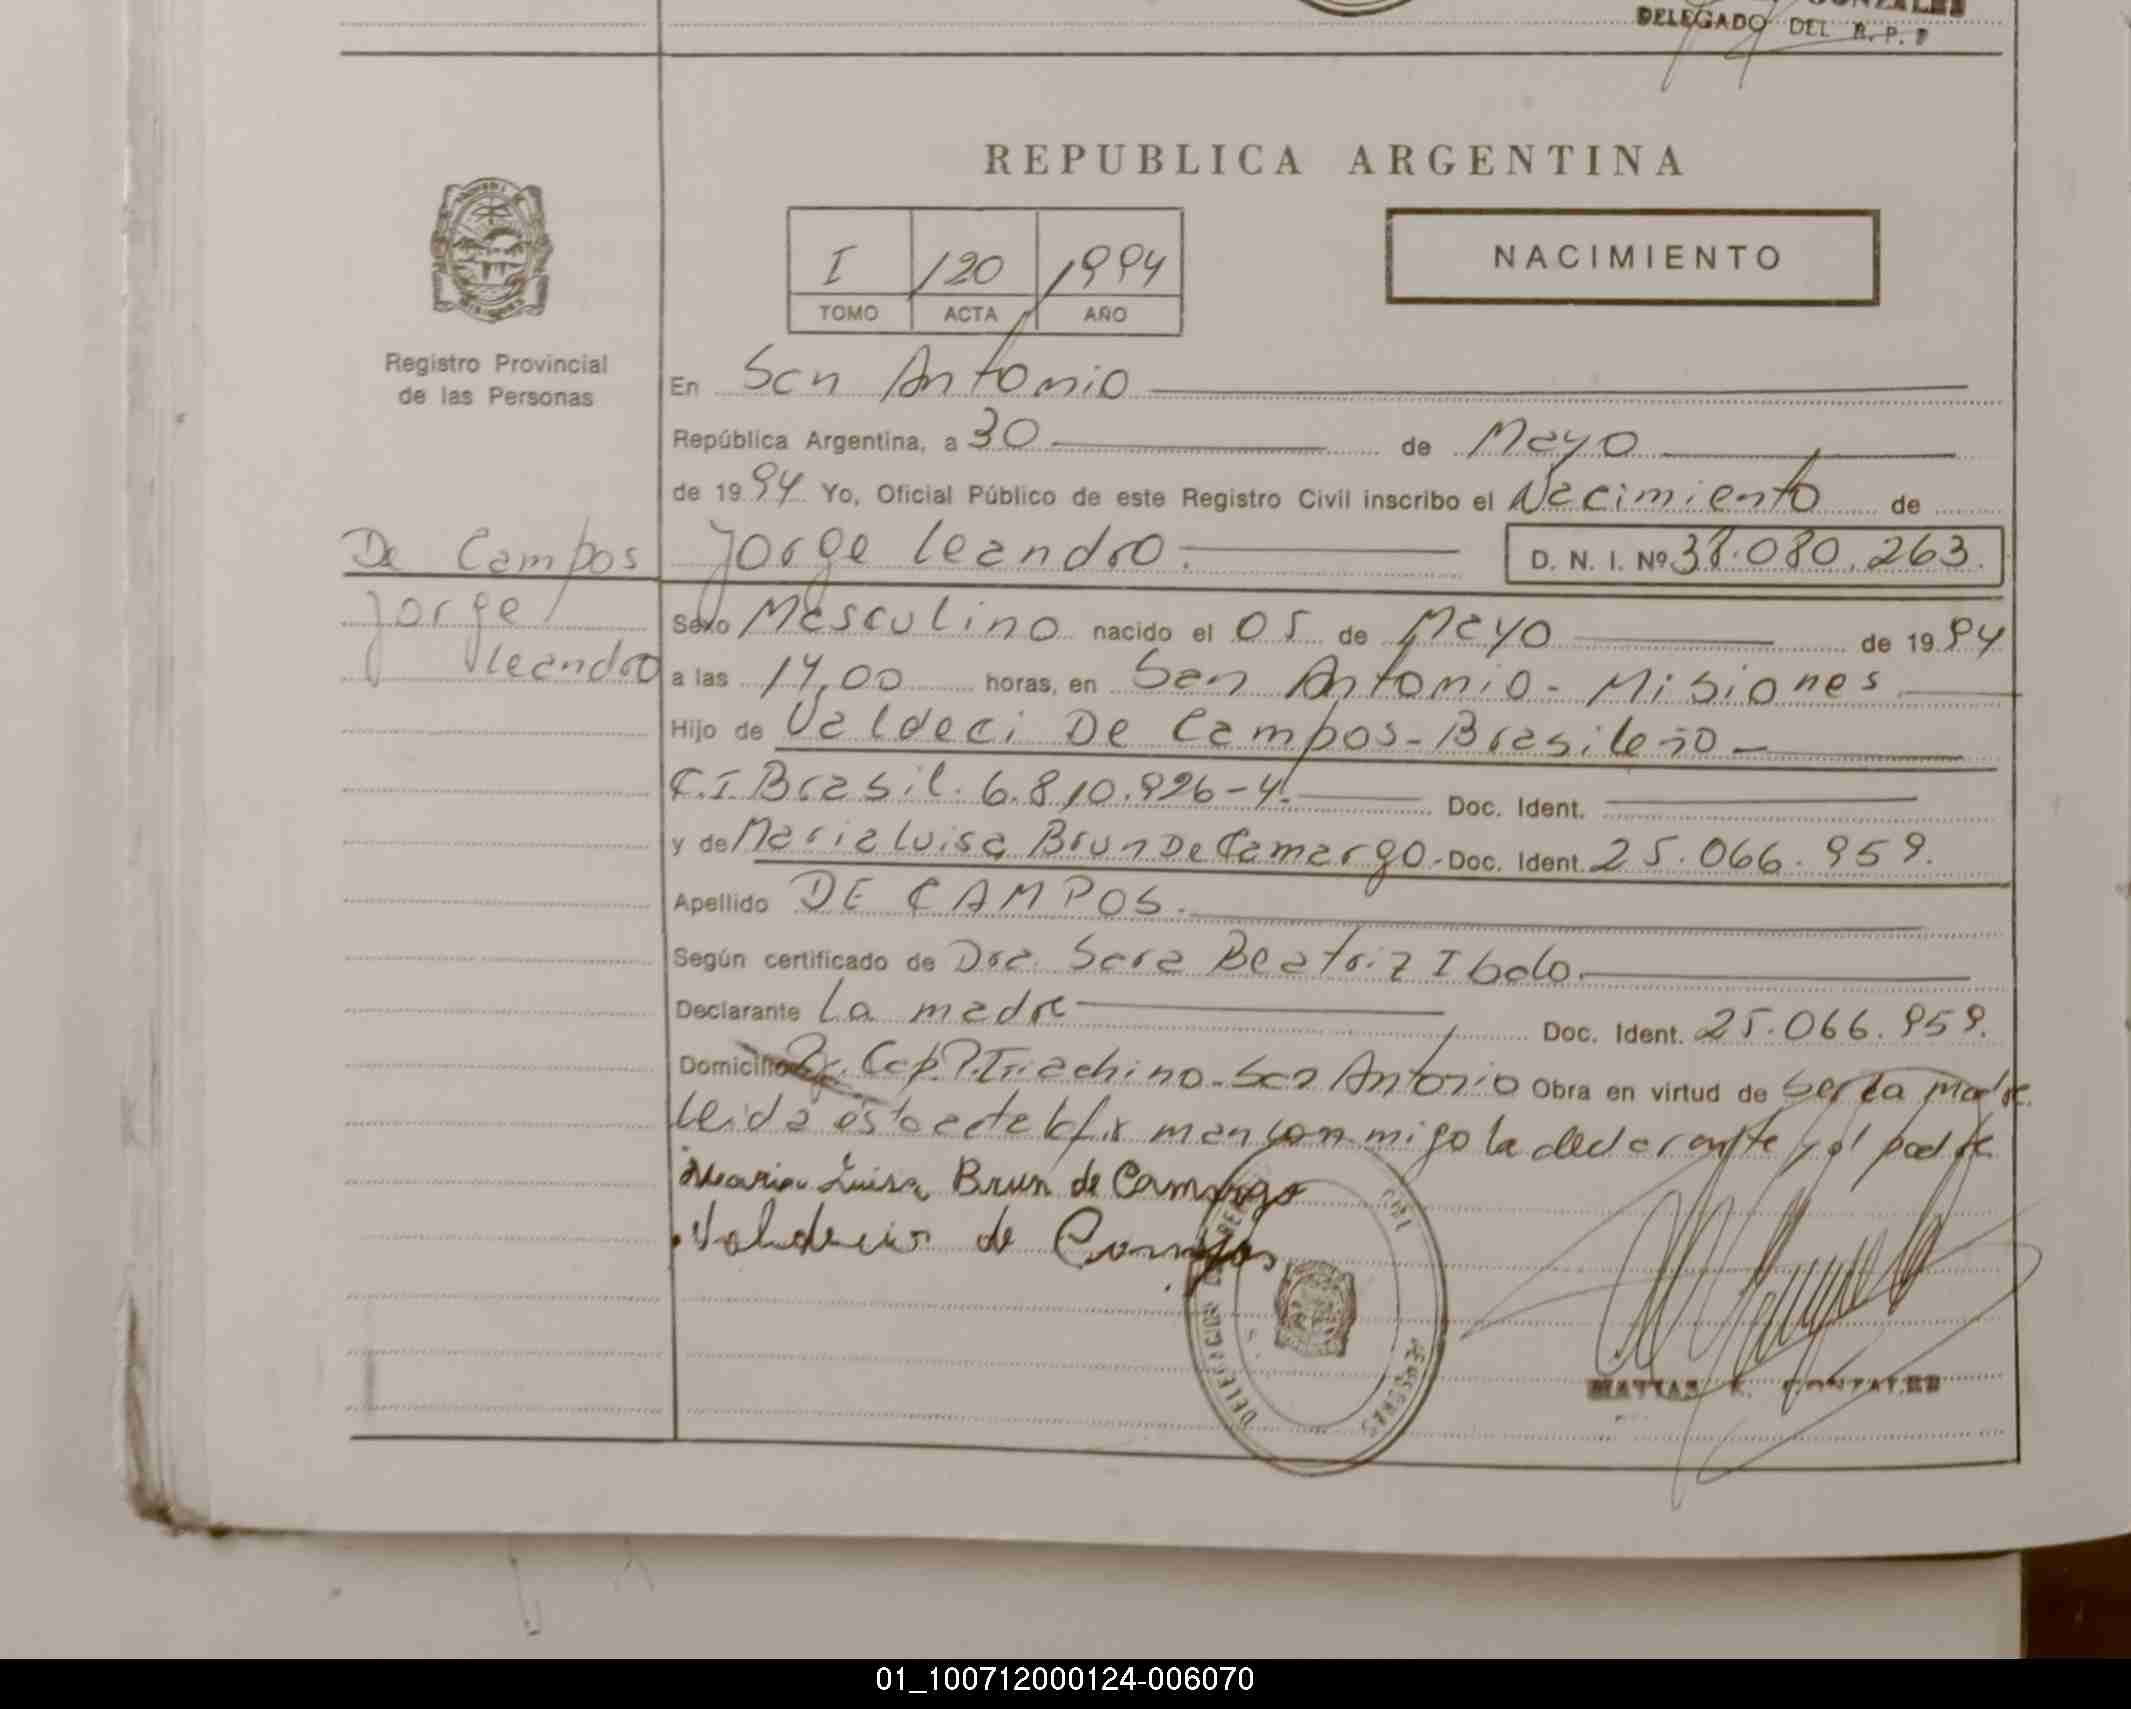 DELEGADO DEL R. P. P
REPUBLICA ARGENTINA
I /120 1994
TOMO ACTA AÑO
NACIMIENTO
Registro Provincial
de las Personas
En San Antonio
República Argentina, a 30 de Mayo
de 1994 Yo, Oficial Público de este Registro Civil inscribo el Nacimiento de
De Campos Jorge Leandro. D. N. I. Nº 38.080.263.
Jorge
Leandro
Sexo Masculino nacido el 05 de Mayo de 1994
a las 14,00 horas, en San Antonio - Misiones
Hijo de Valdeci De Campos - Brasileño
C.I Brasil. 6.810.926-4. Doc. Ident.
y de Maria Luisa Brun De Camargo.- Doc. Ident. 25.066.959.
Apellido DE CAMPOS.
Según certificado de Dra. Sara Beatriz Ibalo.
Declarante La madre Doc. Ident. 25.066.959.
Domicilio San Antonio Obra en virtud de ser la madre
Leida esta acta la firman conmigo la declarante y el padre
Maria Luisa Brun de Camargo
de Campos
DELEGACION
MATIAS R. GONZALES
01_100712000124-006070